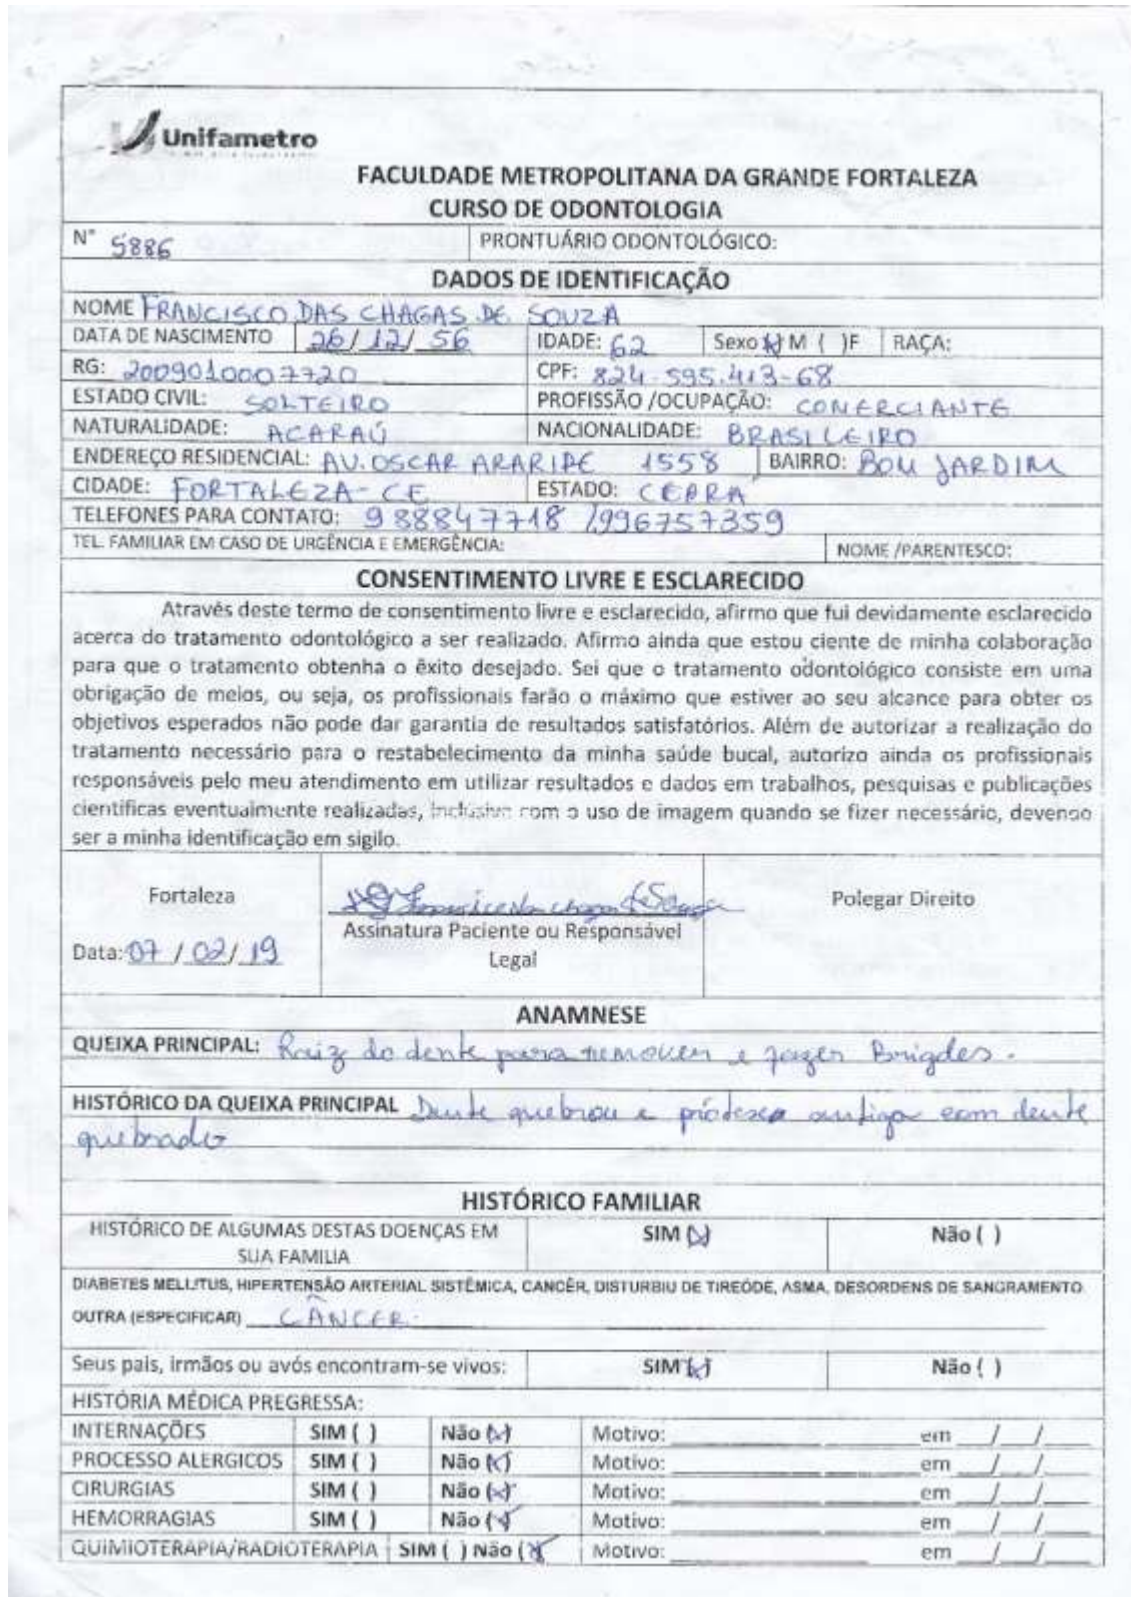 Unifametro
FACULDADE METROPOLITANA DA GRANDE FORTALEZA
CURSO DE ODONTOLOGIA
N° 5886 PRONTUÁRIO ODONTOLÓGICO:
DADOS DE IDENTIFICAÇÃO
NOME FRANCISCO DAS CHAGAS DE SOUZA
DATA DE NASCIMENTO 26/12/56 IDADE: 62 Sexo (x) M ( )F RAÇA:
RG: 2009010007720 CPF: 824-595.413-68
ESTADO CIVIL: SOLTEIRO PROFISSÃO /OCUPAÇÃO: COMERCIANTE
NATURALIDADE: ACARAÚ NACIONALIDADE: BRASILEIRO
ENDEREÇO RESIDENCIAL: AV. OSCAR ARARIPE 1558 BAIRRO: BOM JARDIM
CIDADE: FORTALEZA-CE ESTADO: CEARÁ
TELEFONES PARA CONTATO: 988847718 /996757359
TEL. FAMILIAR EM CASO DE URGÊNCIA E EMERGÊNCIA: NOME /PARENTESCO:
CONSENTIMENTO LIVRE E ESCLARECIDO
Através deste termo de consentimento livre e esclarecido, afirmo que fui devidamente esclarecido
acerca do tratamento odontológico a ser realizado. Afirmo ainda que estou ciente de minha colaboração
para que o tratamento obtenha o êxito desejado. Sei que o tratamento odontológico consiste em uma
obrigação de meios, ou seja, os profissionais farão o máximo que estiver ao seu alcance para obter os
objetivos esperados não pode dar garantia de resultados satisfatórios. Além de autorizar a realização do
tratamento necessário para o restabelecimento da minha saúde bucal, autorizo ainda os profissionais
responsáveis pelo meu atendimento em utilizar resultados e dados em trabalhos, pesquisas e publicações
científicas eventualmente realizadas, inclusive com o uso de imagem quando se fizer necessário, devendo
ser a minha identificação em sigilo.
Fortaleza
Data: 07/02/19
Francisco das chagas de Souza
Assinatura Paciente ou Responsável
Legal
Polegar Direito
ANAMNESE
QUEIXA PRINCIPAL: Raiz do dente para remover e fazer Brigdes.
HISTÓRICO DA QUEIXA PRINCIPAL Dente quebrou e prótese antiga com dente
quebrado
HISTÓRICO FAMILIAR
HISTÓRICO DE ALGUMAS DESTAS DOENÇAS EM SIM (x) Não ( )
SUA FAMILIA
DIABETES MELLITUS, HIPERTENSÃO ARTERIAL SISTÊMICA, CANCÊR, DISTURBIU DE TIREÓDE, ASMA, DESORDENS DE SANGRAMENTO
OUTRA (ESPECIFICAR) CÂNCER.
Seus pais, irmãos ou avós encontram-se vivos: SIM (x) Não ( )
HISTÓRIA MÉDICA PREGRESSA:
INTERNAÇÕES SIM ( ) Não (x) Motivo: em / /
PROCESSO ALERGICOS SIM ( ) Não (x) Motivo: em / /
CIRURGIAS SIM ( ) Não (x) Motivo: em / /
HEMORRAGIAS SIM ( ) Não (x) Motivo: em / /
QUIMIOTERAPIA/RADIOTERAPIA SIM ( ) Não (x) Motivo: em / /